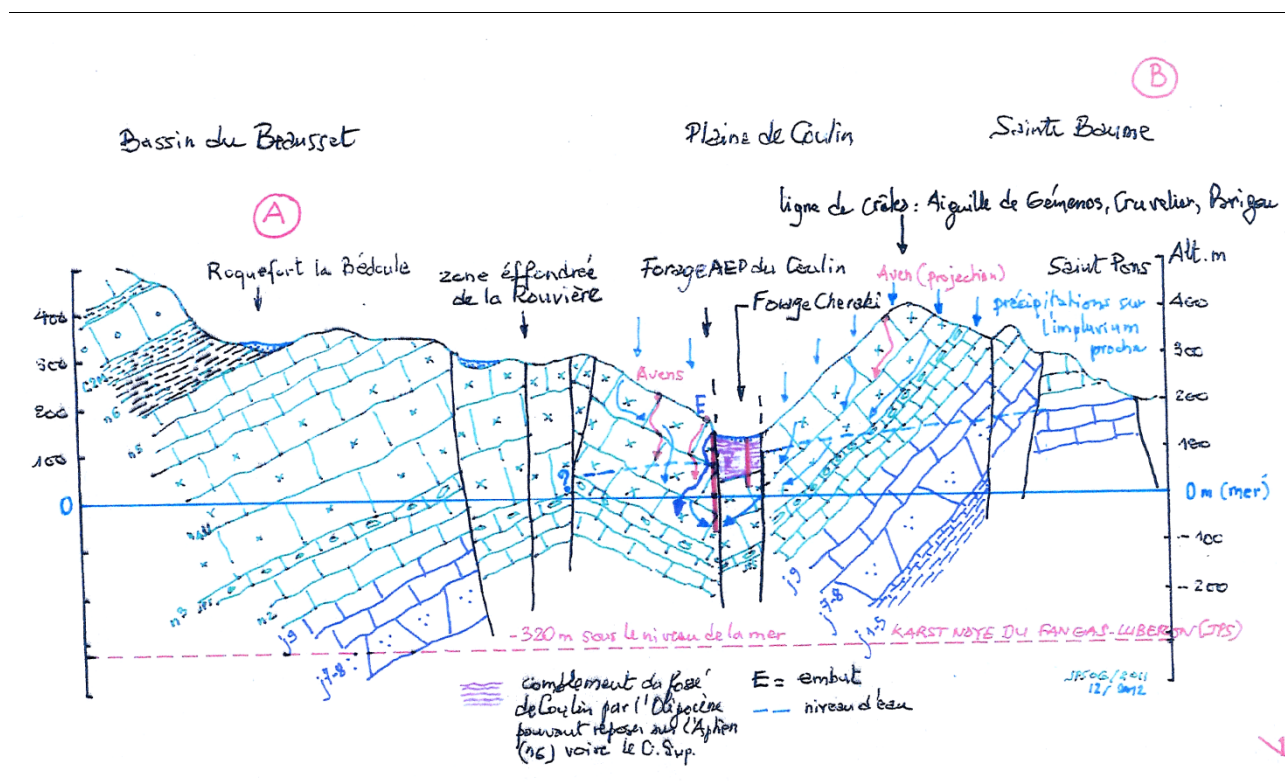 B
Bassin du Beausset
Plaine de Coulin
Sainte Baume
A
ligne de crêtes : Aiguille de Gémenos, Cruvelier, Brigou
Roquefort la Bédoule
zone éffondrée
de la Rouvière
Forage AEP du Coulin
Forage Cheraki
Aven (projection)
Saint Pons
Alt. m
précipitations sur
l'impluvium
proche
Avens
E
400
300
200
100
0
400
300
200
100
0 m (mer)
-100
-200
?
n6
n5
n3
n2
j9
j7-8
j9
j7-8
-320 m sous le niveau de la mer
KARST NOYE DU FANGAS-LUBERON (JPS)
comblement du fossé
de Coulin par l'Oligocène
pouvant reposer sur l'Aptien
(n6) voire le C. Sup.
E = embut
niveau d'eau
12/2012